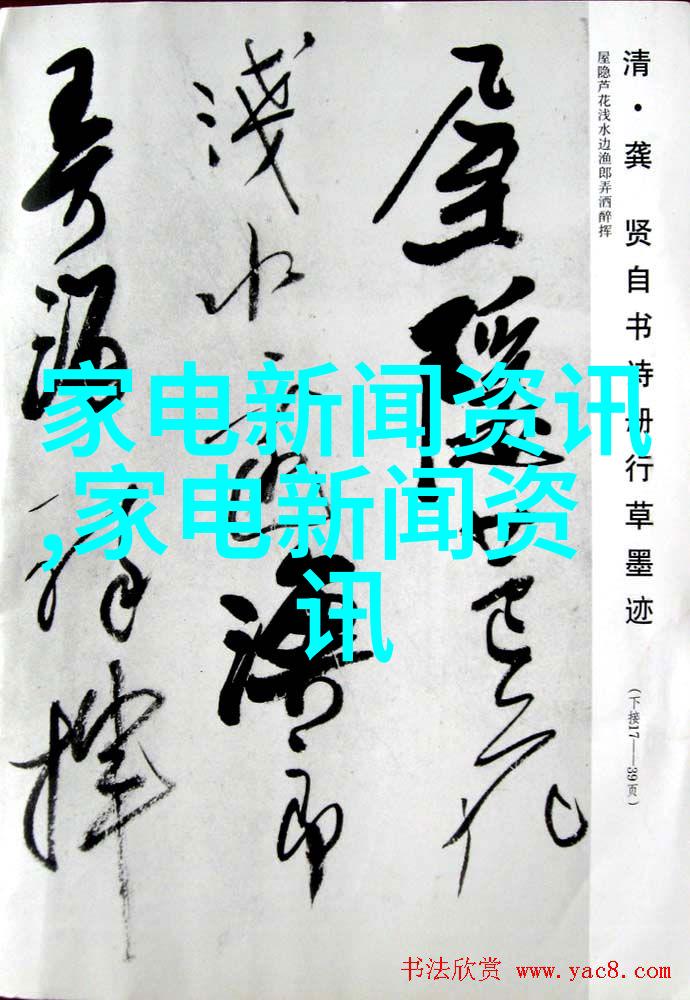 清·龚 贤自书诗册行草墨迹
屋隐芦花浅水边渔郎弄洒醉挥
(下接17——39页)
屋隐芦花
浅水边渔郎
弄酒醉挥
家电新闻资讯
,家电新闻资
讯
书法欣赏 www.yac8.com